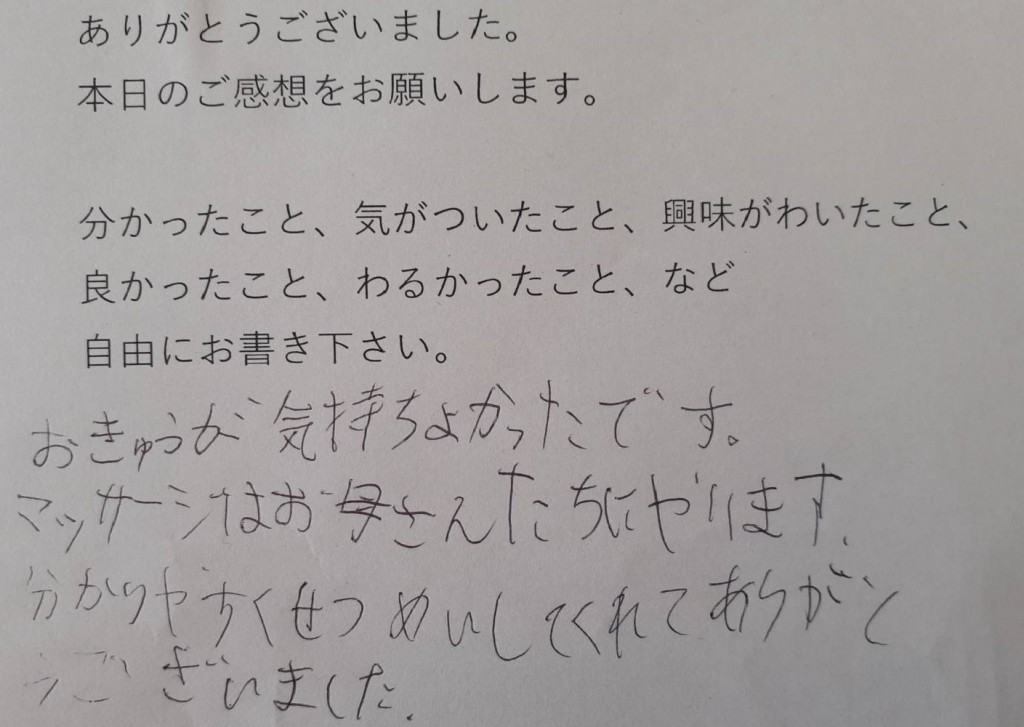 ありがとうございました。
本日のご感想をお願いします。
分かったこと、気がついたこと、興味がわいたこと、
良かったこと、わるかったこと、など
自由にお書き下さい。
おきゅうが気持ちよかったです。
マッサージはお母さんたちにやります.
分かりやすくせつめいしてくれてありがと
うございました.